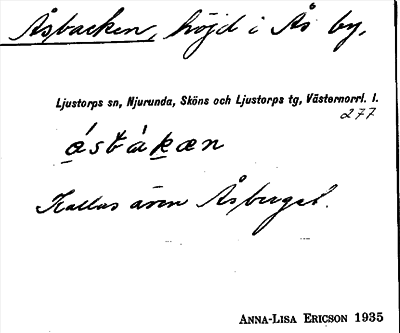 Åsbacken, höjd i Ås by.
Ljustorps sn, Njurunda, Sköns och Ljustorps tg, Västernorrl. l.
277
ǻsbákæn
Kallas även Åsberget.
ANNA-LISA ERICSON 1935